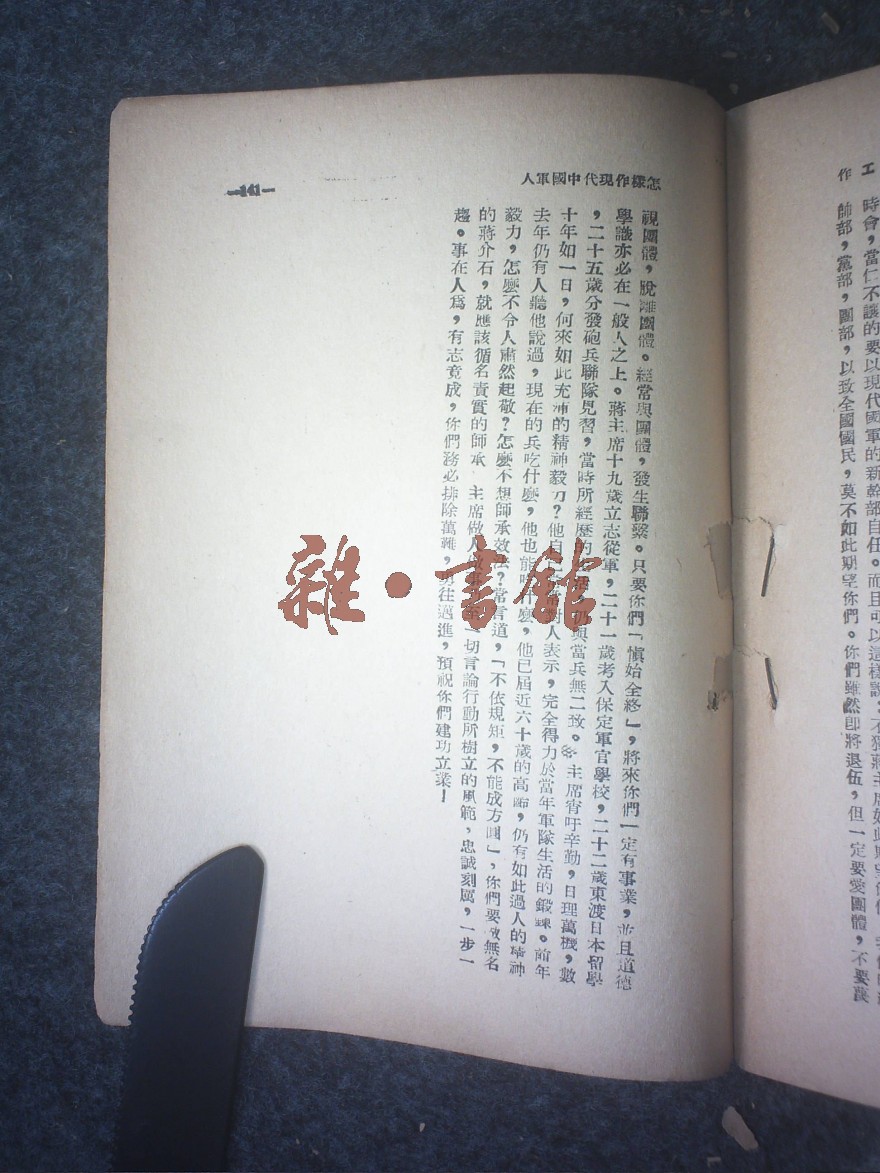 工作
時會，當仁不讓的要以現代國軍的新幹部自任。而且可以這樣說：不獨蔣主席如此期望你們，
師部，黨部，團部，以致全國國民，莫不如此期望你們。你們雖然即將退伍，但一定要愛團體，不要藐
怎樣作現代中國軍人
視團體，脫離團體。經常與團體，發生聯繫。只要你們「愼始全終」，將來你們一定有事業，並且道德
學識亦必在一般人之上。蔣主席十九歲立志從軍，二十一歲考入保定軍官學校，二十二歲東渡日本留學
，二十五歲分發砲兵聯隊見習，當時所經歷的生活，仍與當兵無二致。主席宵旰辛勤，日理萬機，數
十年如一日，何來如此充沛的精神毅力？他自己常對人表示，完全得力於當年軍隊生活的鍛鍊。前年
去年仍有人聽他說過，現在的兵吃什麼，他也能吃什麼，他已屆近六十歲的高齡，仍有如此過人的精神
毅力，怎麼不令人肅然起敬？怎麼不想師承效法？常言道，「不依規矩，不能成方圓」，你們要做無名
的蔣介石，就應該循名責實的師承 主席做人做事 一切言論行動所樹立的風範，忠誠刻厲，一步一
趨。事在人爲，有志竟成，你們務必排除萬難，勇往邁進，預祝你們建功立業！
—141—
雜·書館